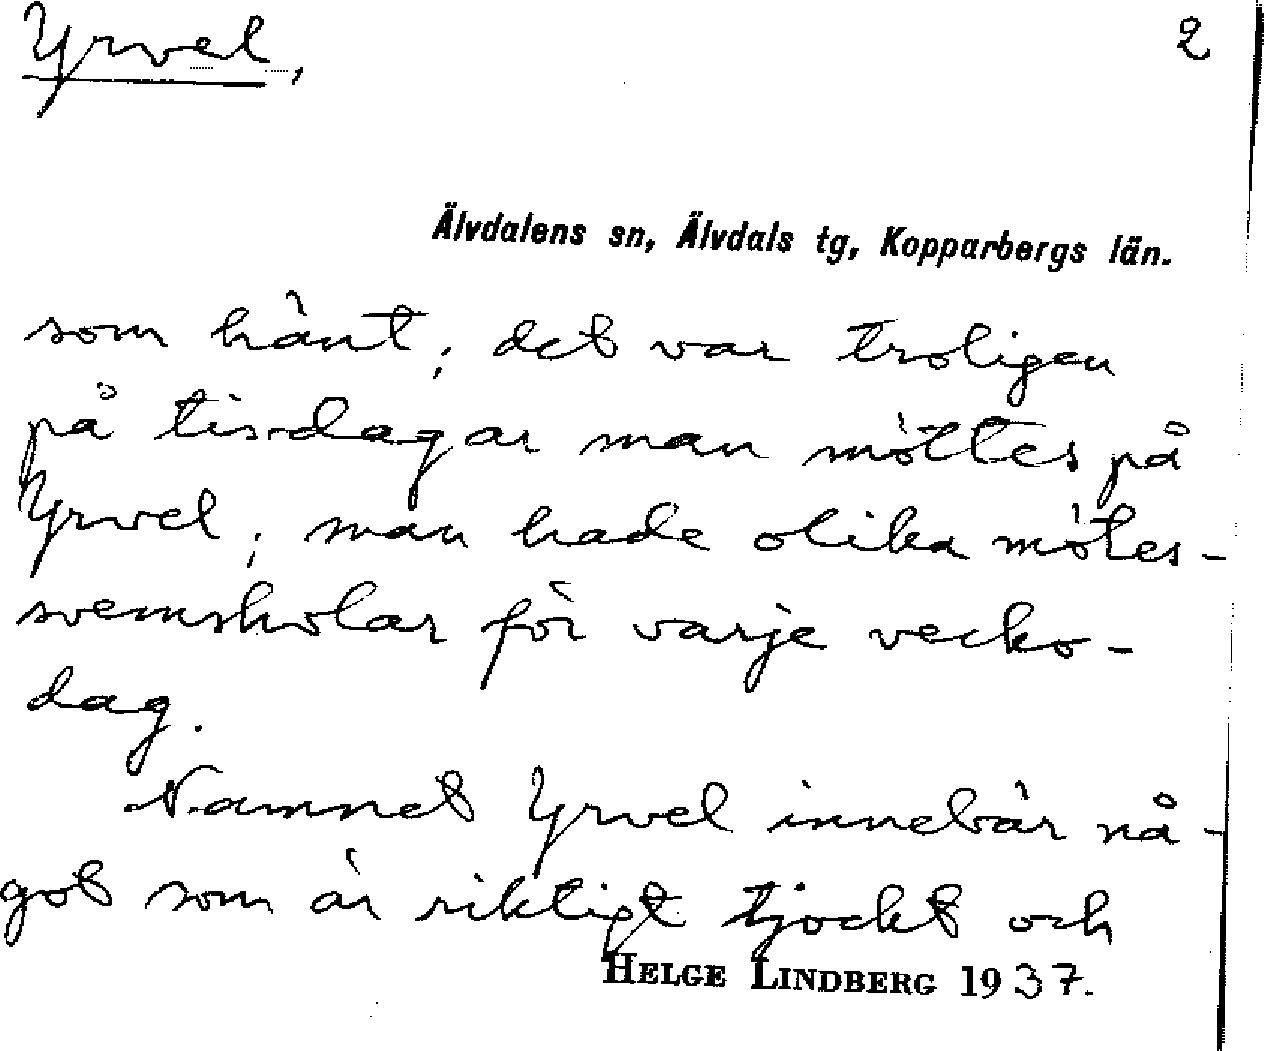 Yrvel,
2
Älvdalens sn, Älvdals tg, Kopparbergs län.
som hänt; det var troligen
på tisdagar man möttes på
Yrvel; man hade olika mötes-
svemskolar för varje vecko-
dag.
Namnet Yrvel innebär nå-
got som är riktigt tjockt och
HELGE LINDBERG 1937.